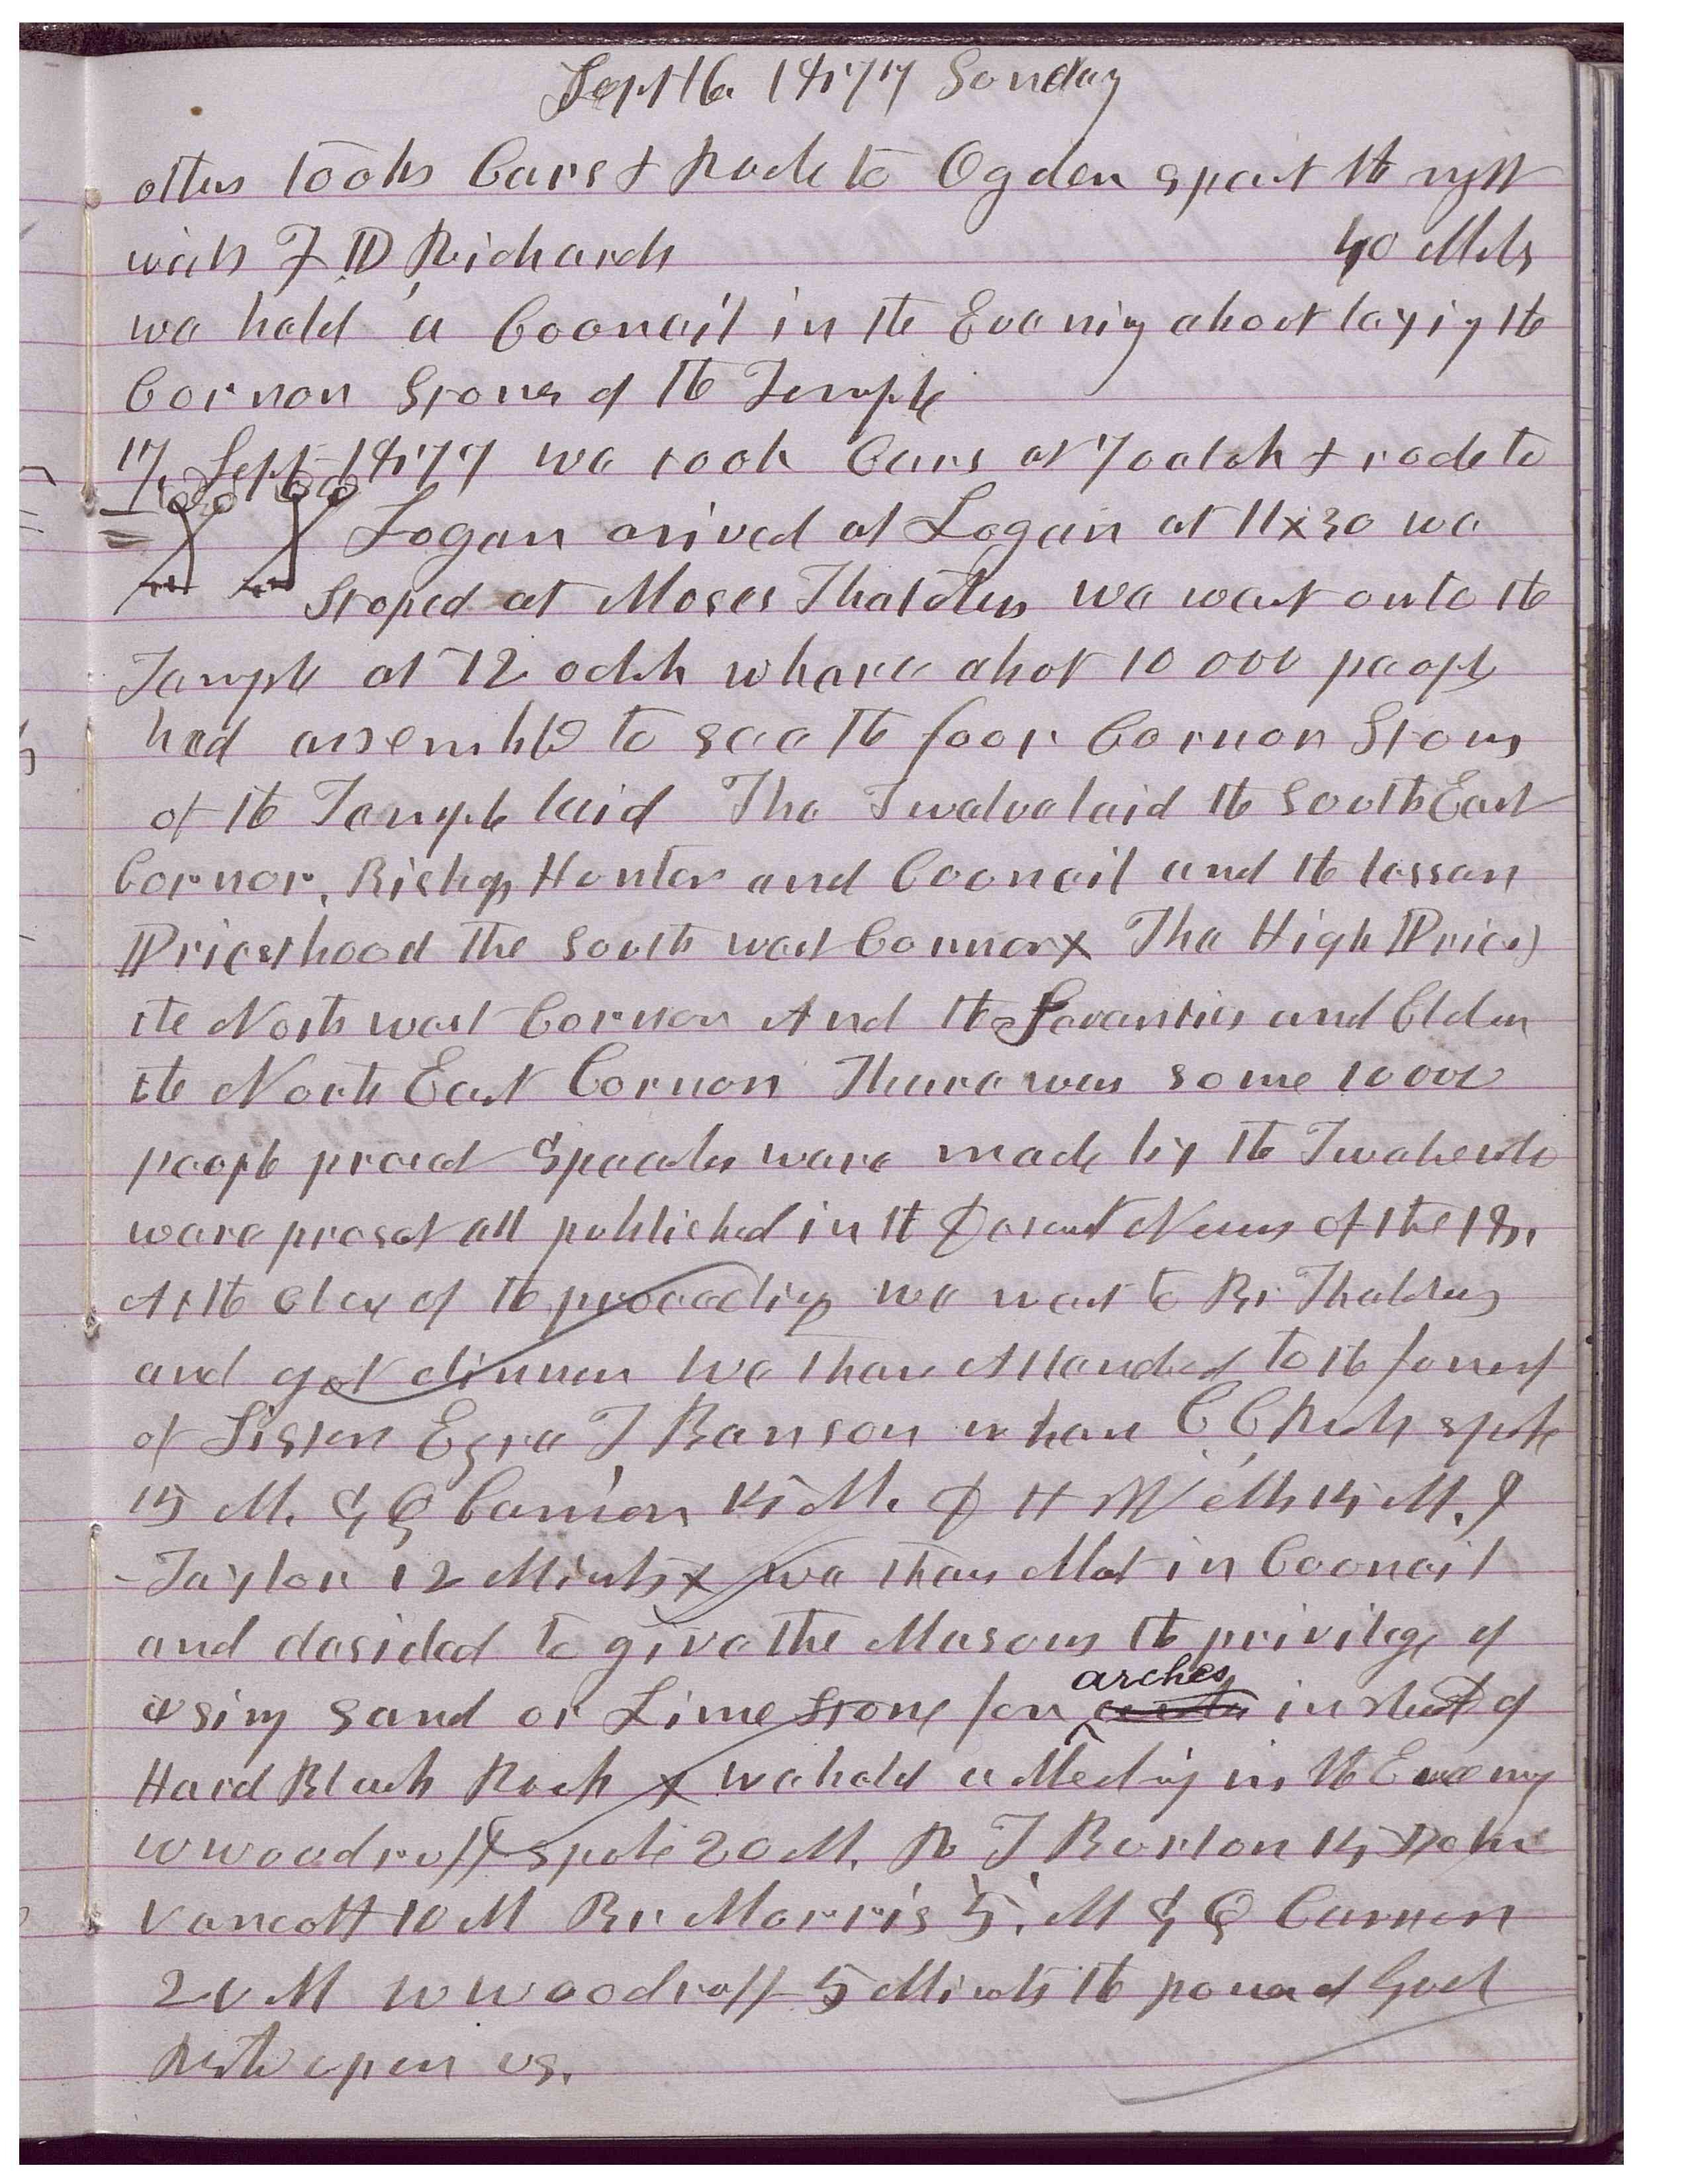 Sept 16 1877 Sonday
others took Cars & Rode to Ogden spent the night
with F D Richards 40 Mils
we held a Council in the Evening about laying the
Cornor Stones of the Temple
17 Sept 1877 we took Cars at 7 oclok & rode to
Logan arived at Logan at 11x30 we
stoped at Moses Thatchers we went onto the
Temple at 12 oclok whare about 10 000 people
had assembled to see the four Cornor Stones
of the Temple laid The Twelve laid the South East
Cornor, Bishop Hunter and Council and the lessor
Priesthood the South west Cornor x The High Priests
the North west Cornor And the Seventies and Elders
the North East Cornor Theare was some 10000
people presed Speaches ware made by the Twelve who
ware preset all published in the Deseret News of the 18.
At the close of the proceedings we went to Br Thatchers
and got dinner We then Attended to the funeral
of Sister Ezra T Benson whare C C Rich spoke
15 M. G Q Cannon 15 M. D H Wells 15 M. J
Taylor 12 Minuts x we then Met in Council
and desided to give the Masons the privilege of
using Sand or Lime Stone for arches insted of
Hard Black Rock x we held a Meeting in the Evening
W Woodruff spoke 20 M. R T Borton 15 John
Vancott 10 M Br Morris 5. M G Q Cannon
20 M W Woodruff 5 Minuts the power of God
rested upon us.